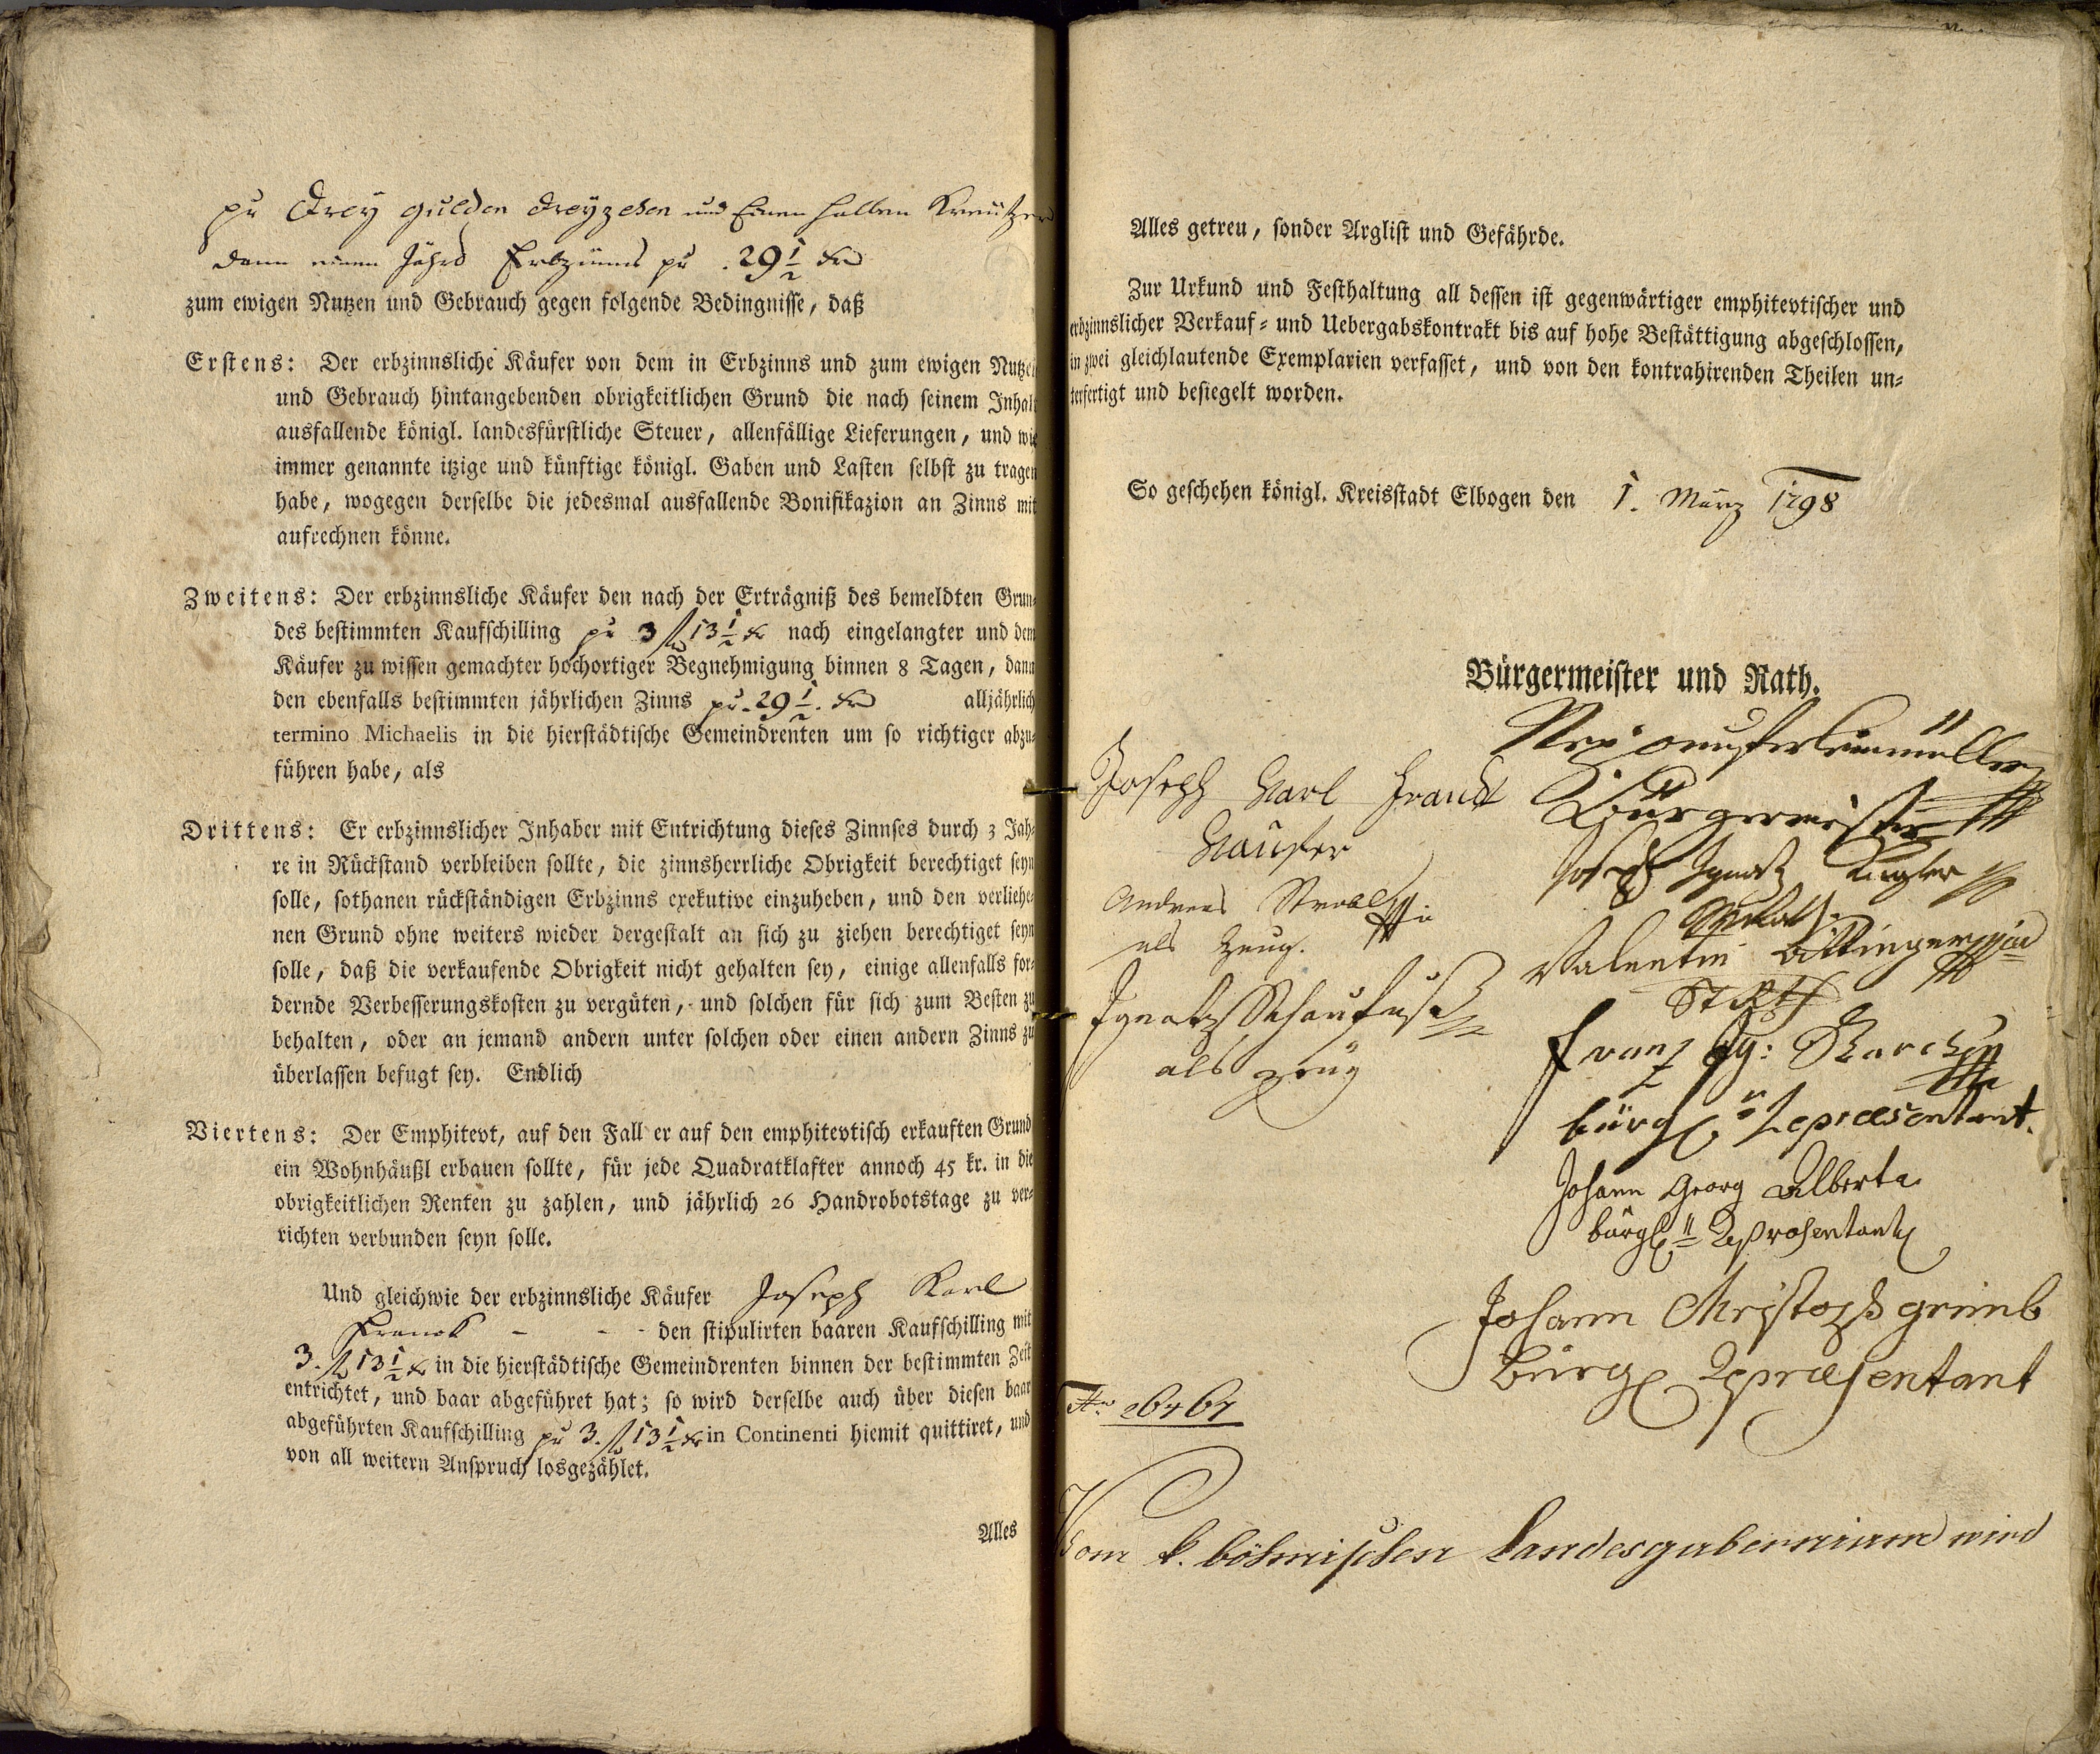 pr Drey gulden dreyzehen und Einen halben Kreützer
dann einen Jährl Erbzinns pr 29 1/2 kr
zum ewigen Nutzen und Gebrauch gegen folgende Bedingnisse, daß
Erstens: Der erbzinnsliche Käufer von dem in Erbzinns und zum ewigen Nutzen
und Gebrauch hintangebenden obrigkeitlichen Grund die nach seinem Inhalt
ausfallende königl. landesfürstliche Steuer, allenfällige Lieferungen, und wie
immer genannte itzige und künftige königl. Gaben und Lasten selbst zu tragen
habe, wogegen derselbe die jedesmal ausfallende Bonifikazion an Zinns mit
aufrechnen könne.
Zweitens: Der erbzinnsliche Käufer den nach der Erträgniß des bemeldten Grun-
des bestimmten Kaufschilling pr 3 fl 13 1/2 kr nach eingelangter und dem
Käufer zu wissen gemachter hochortiger Begnehmigung binnen 8 Tagen, dann
den ebenfalls bestimmten jährlichen Zinns pr. 29 1/2. kr alljährlich
termino Michaelis in die hierstädtische Gemeindrenten um so richtiger abzu-
führen habe, als
Drittens: Er erbzinnslicher Inhaber mit Entrichtung dieses Zinnses durch 3 Jah-
re in Rückstand verbleiben sollte, die zinnsherrliche Obrigkeit berechtiget seyn
solle, sothanen rückständigen Erbzinns exekutive einzuheben, und den verliehe-
nen Grund ohne weiters wieder dergestalt an sich zu ziehen berechtiget seyn
solle, daß die verkaufende Obrigkeit nicht gehalten sey, einige allenfalls for-
dernde Verbesserungskosten zu vergüten, und solchen für sich zum Besten zu
behalten, oder an jemand andern unter solchen oder einen andern Zinns zu
überlassen befugt sey. Endlich
Viertens: Der Emphitevt, auf den Fall er auf den emphitevtisch erkauften Grund
ein Wohnhäußl erbauen sollte, für jede Quadratklafter annoch 45 kr. in die
obrigkeitlichen Renten zu zahlen, und jährlich 26 Handrobotstage zu ver-
richten verbunden seyn solle.
Und gleichwie der erbzinnsliche Käufer Joseph Karl
Franck - - - den stipulirten baaren Kaufschilling mit
3. fl 13 1/2 kr in die hierstädtische Gemeindrenten binnen der bestimmten Zeit
entrichtet, und baar abgeführet hat; so wird derselbe auch über diesen baar
abgeführten Kaufschilling pr 3. fl 13 1/2 kr in Continenti hiemit quittiret, und
von all weitern Anspruch losgezählet.
Alles
Alles getreu, sonder Arglist und Gefährde.
Zur Urkund und Festhaltung all dessen ist gegenwärtiger emphitevtischer und
erbzinnslicher Verkauf- und Uebergabskontrakt bis auf hohe Bestättigung abgeschlossen,
in zwei gleichlautende Exemplarien verfasset, und von den kontrahirenden Theilen un-
terfertigt und besiegelt worden.
So geschehen königl. Kreisstadt Elbogen den 1. März 1798
Bürgermeister und Rath.
Bürgermeister
Joseph Karl Franck
Kaufer
Joseph Ignatz Kugler
Andreas Strobl
als Zeug.
Valentin
Ignatz Schaufuß
als Zeug
Franz Ig:
bürgl. Repraesentant.
Johann Georg Alberta
bürgl. Repräsentant
Johann Christoph grimb
bürgl Repraesentant
Vom k. böhmischen Landesgubernium wird